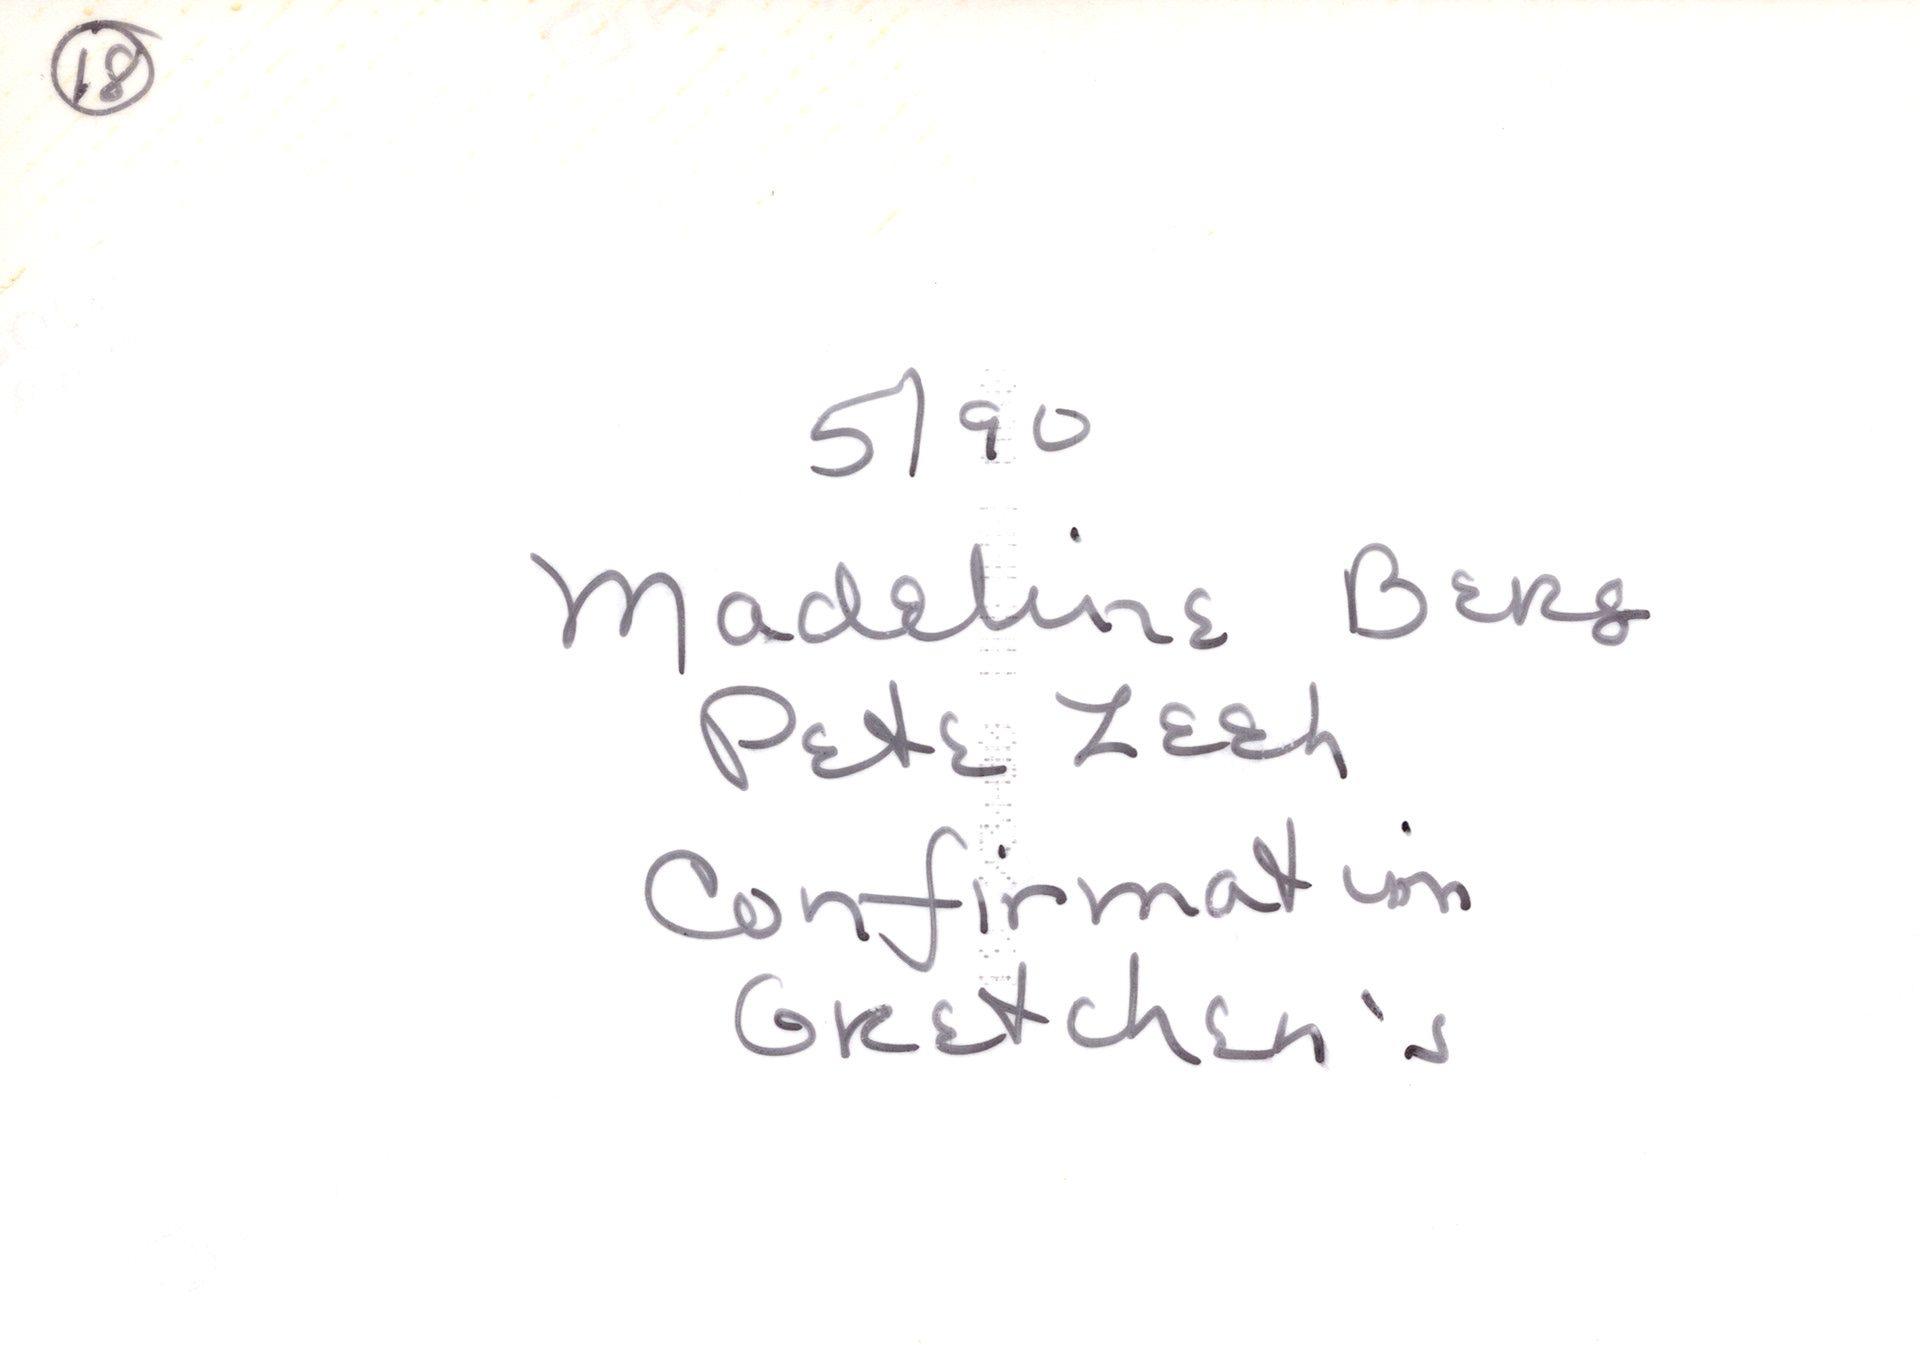 18
5/90
Madeline Berg
Pete Zeeh
Confirmation
Gretchen's